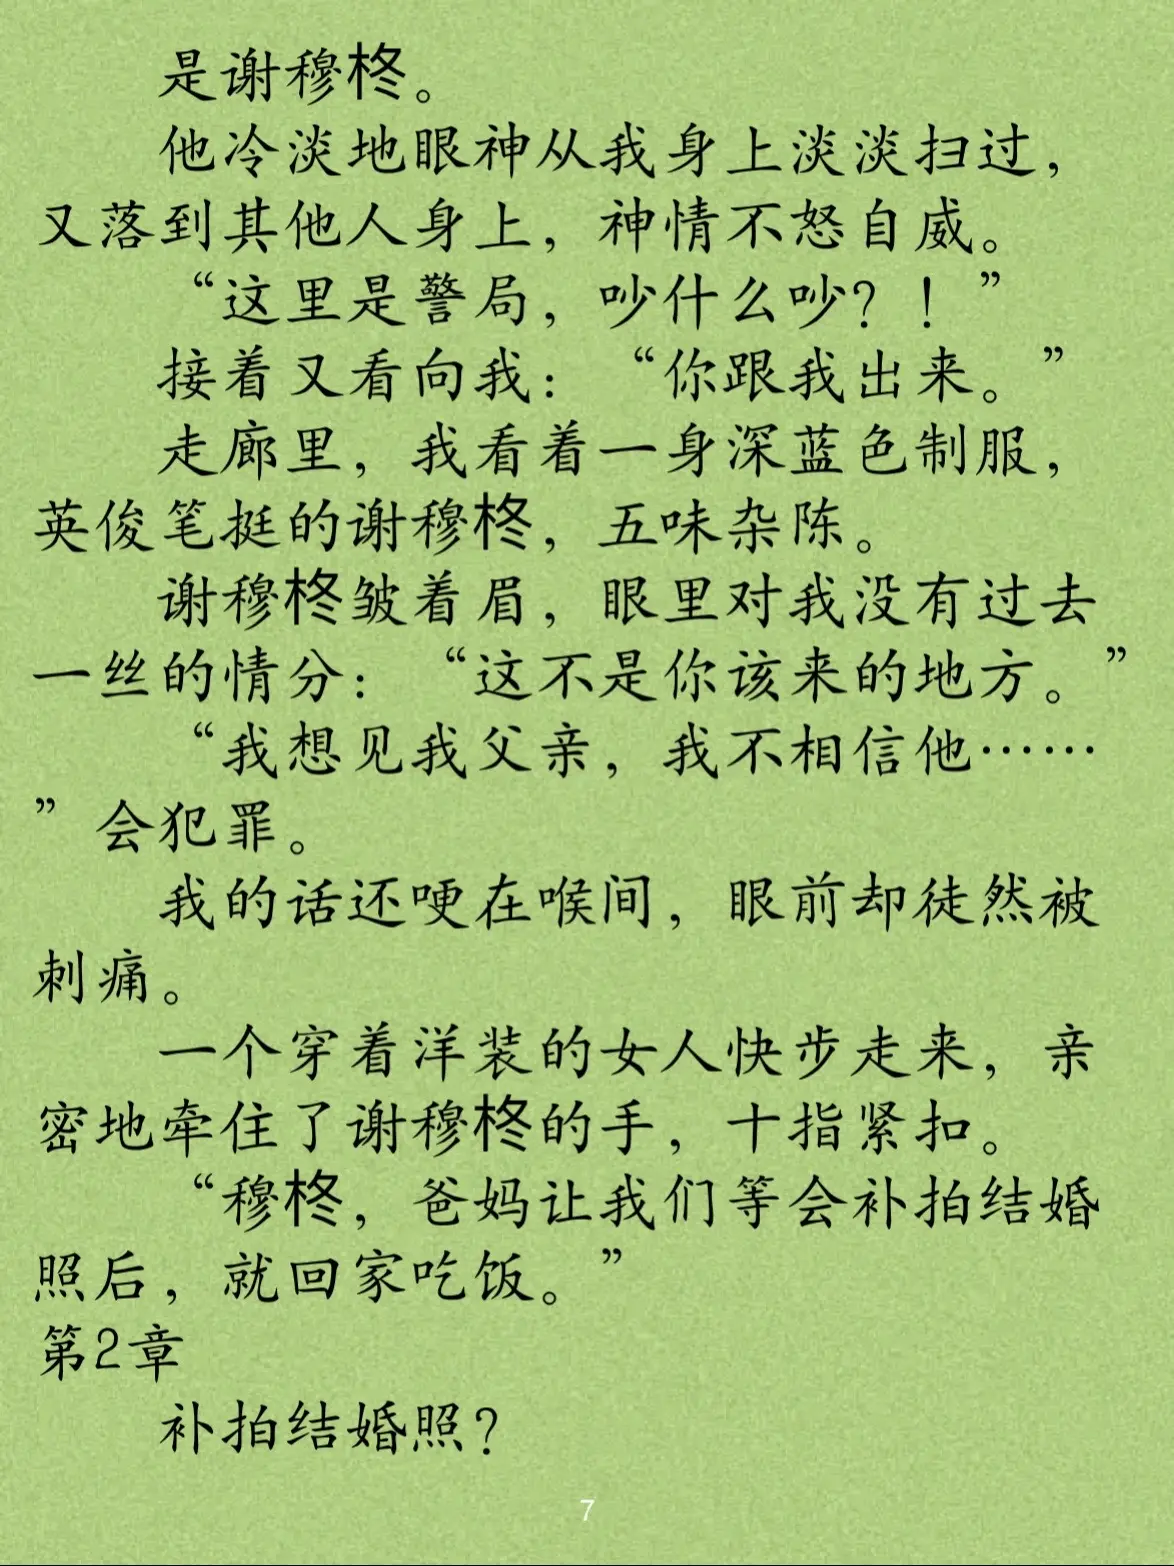 是谢穆柊。
他冷淡地眼神从我身上淡淡扫过，
又落到其他人身上，神情不怒自威。
“这里是警局，吵什么吵？！”
接着又看向我：“你跟我出来。”
走廊里，我看着一身深蓝色制服，
英俊笔挺的谢穆柊，五味杂陈。
谢穆柊皱着眉，眼里对我没有过去
一丝的情分：“这不是你该来的地方。”
“我想见我父亲，我不相信他……
”会犯罪。
我的话还哽在喉间，眼前却徒然被
刺痛。
一个穿着洋装的女人快步走来，亲
密地牵住了谢穆柊的手，十指紧扣。
“穆柊，爸妈让我们等会补拍结婚
照后，就回家吃饭。”
第2章
补拍结婚照？
7